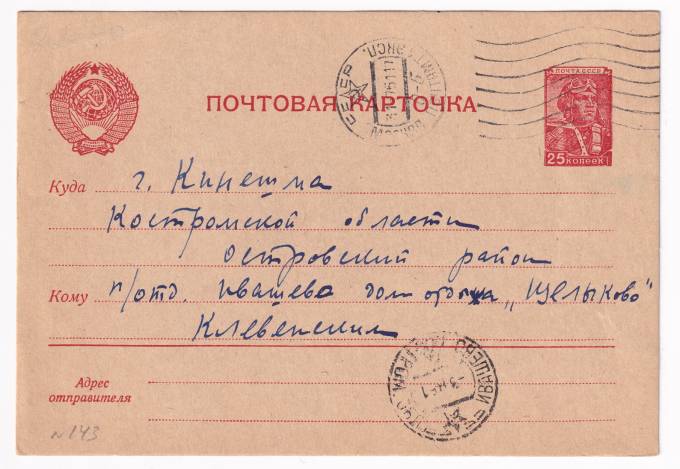 ПОЧТОВАЯ КАРТОЧКА
ПОЧТА СССР
25 КОПЕЕК
СССР
МОСКВА
Куда г. Кинешма
Костромской области
Островский район
Кому п/отд. Ивашево дом отдыха „Щелыково"
Клевенским
ИВАШЕВО
Адрес
отправителя
N 143